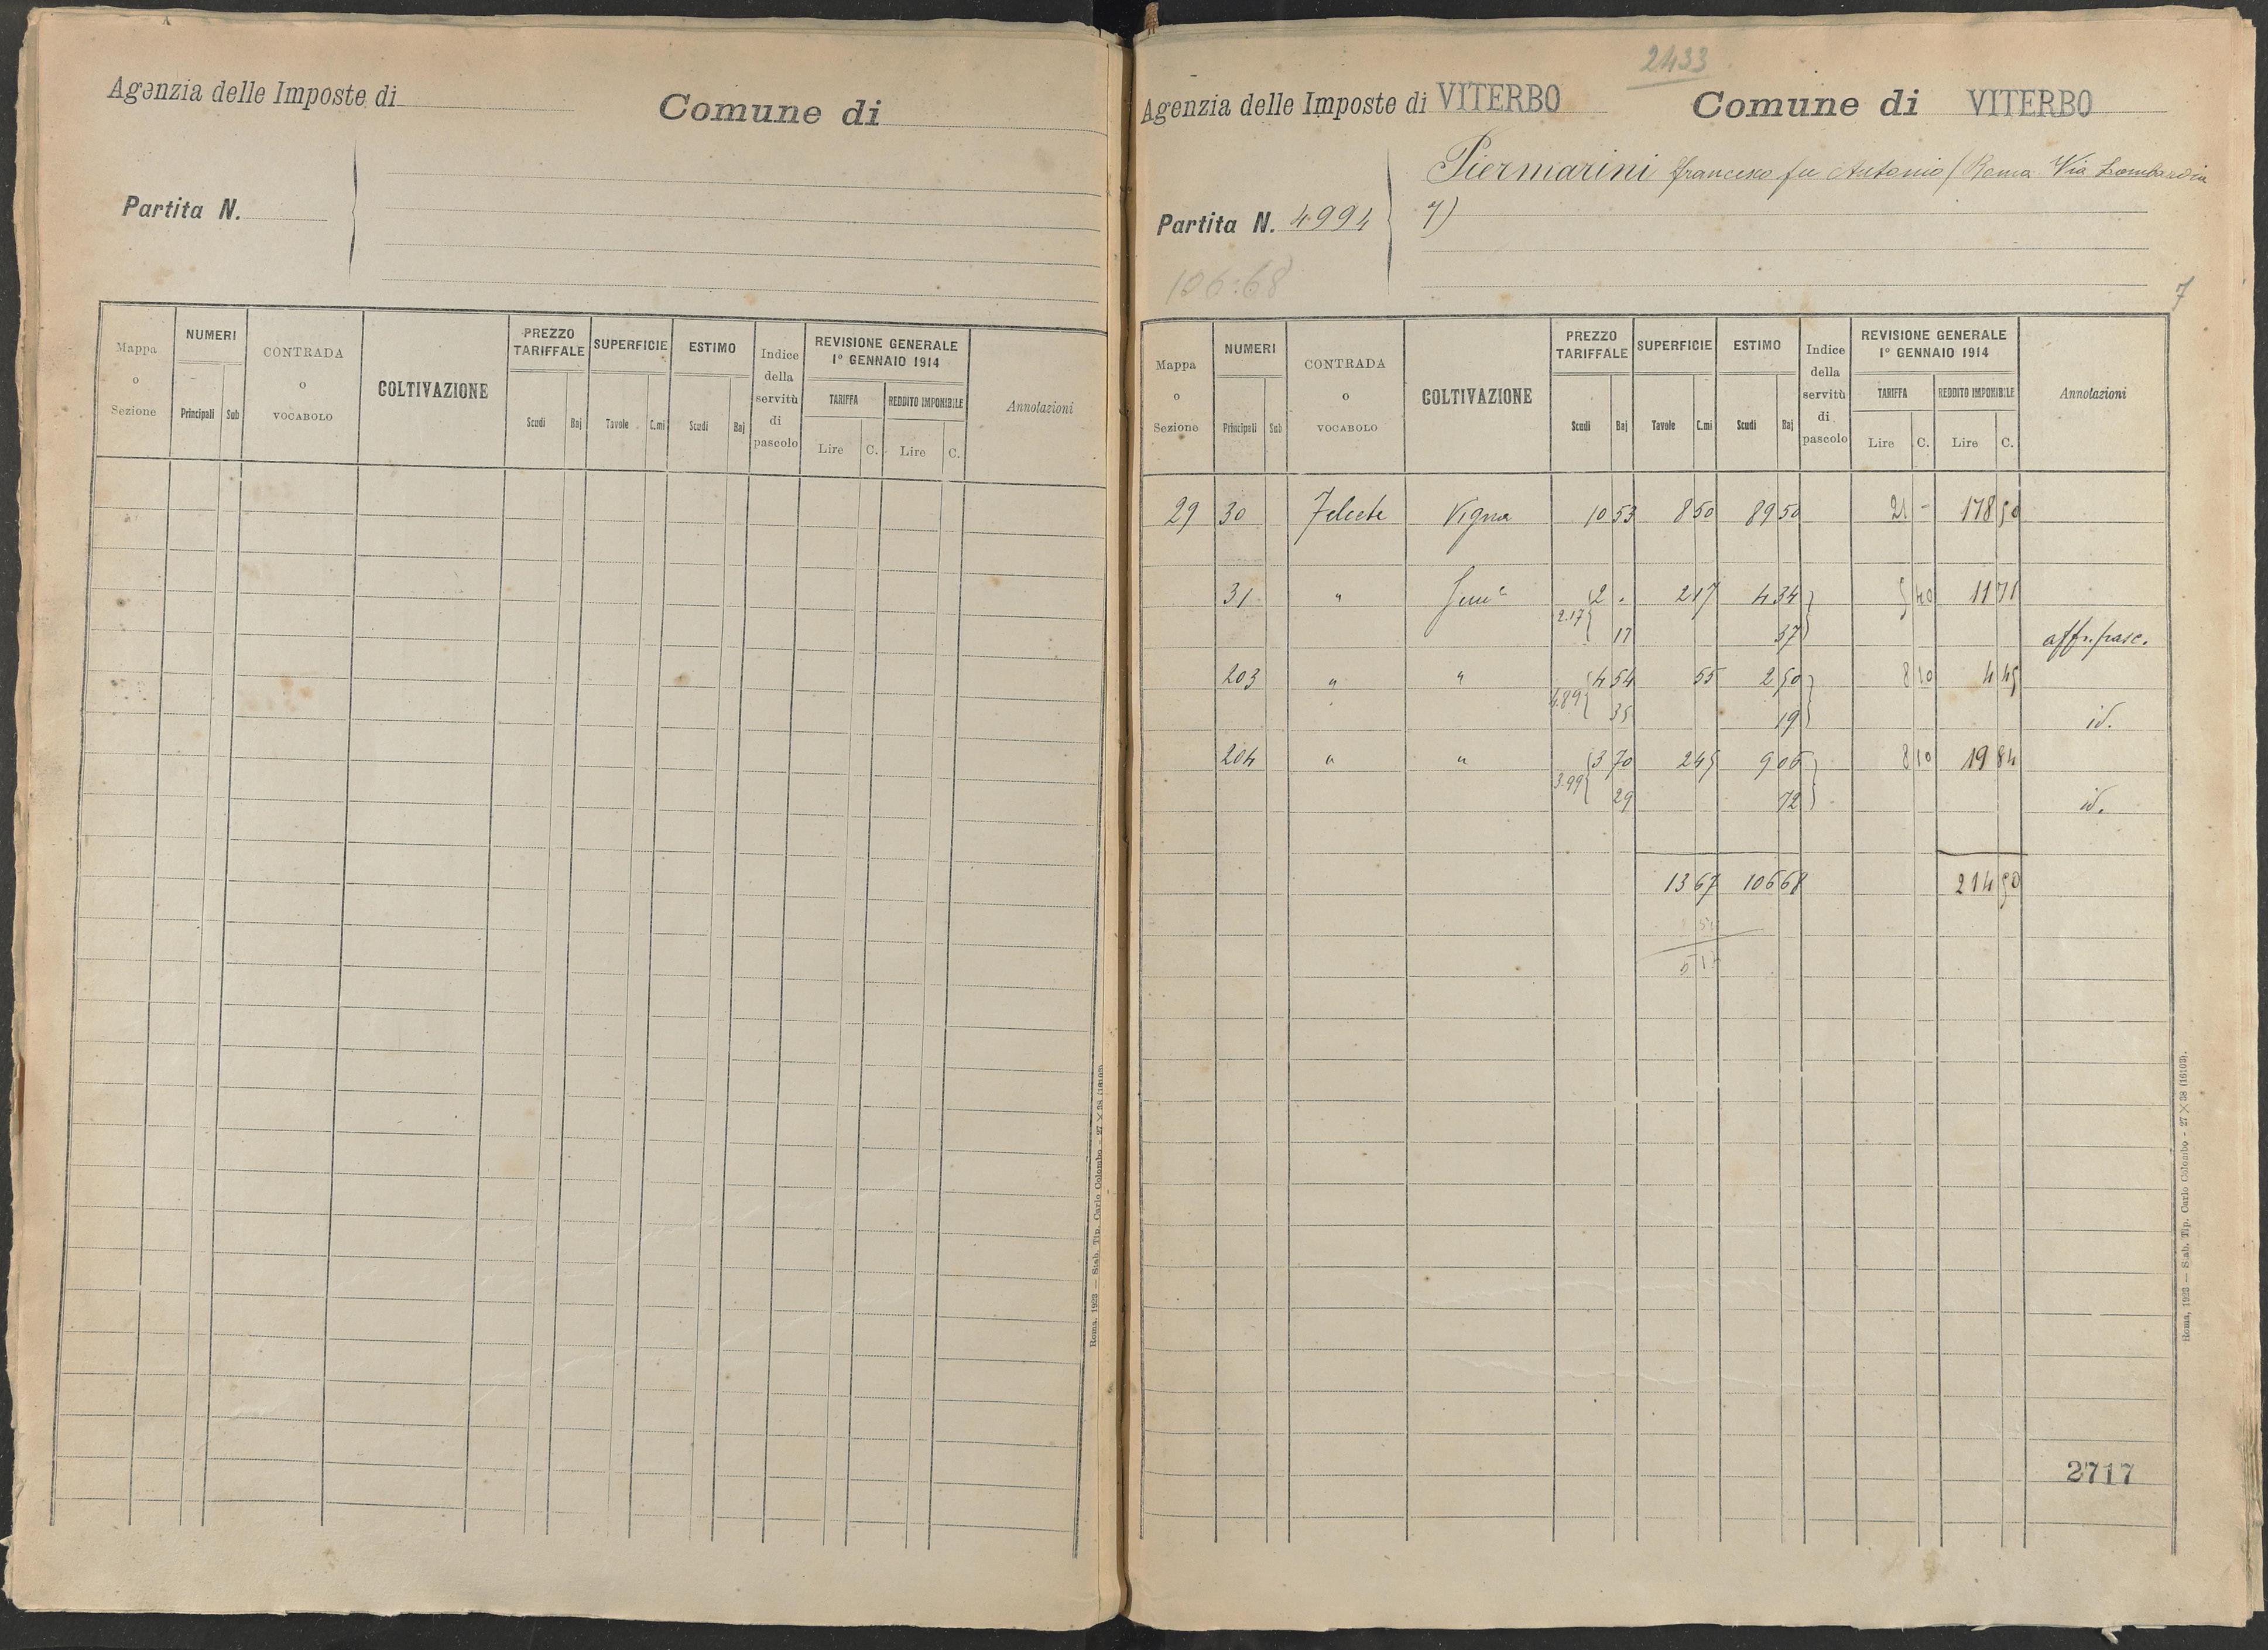 Agenzia delle Imposte di
Comune di
Partita N.
Mappa o Sezione
NUMERI
Principali
Sub
CONTRADA o VOCABOLO
COLTIVAZIONE
PREZZO TARIFFALE
Scudi
Baj
SUPERFICIE
Tavole
C.mi
ESTIMO
Scudi
Baj
Indice della servitù di pascolo
REVISIONE GENERALE
1° GENNAIO 1914
TARIFFA
REDDITO IMPONIBILE
Lire
C.
Lire
C.
Annotazioni
Roma, 1923 — Stab. Tip. Carlo Colombo - 27 × 38 (16103).
2433
Agenzia delle Imposte di VITERBO
Comune di VITERBO
Piermarini francesco fu Antonio (Roma Via Lombardia
7)
Partita N. 4994
106:68
7
Mappa o Sezione
NUMERI
Principali
Sub
CONTRADA o VOCABOLO
COLTIVAZIONE
PREZZO TARIFFALE
Scudi
Baj
SUPERFICIE
Tavole
C.mi
ESTIMO
Scudi
Baj
Indice della servitù di pascolo
REVISIONE GENERALE
1° GENNAIO 1914
TARIFFA
REDDITO IMPONIBILE
Lire
C.
Lire
C.
Annotazioni
29 30 Felcete Vigna 10 53 8 50 89 50 21 - 178 50
31 " 2 . 2 17 4 34 5 40 11 71
2.17 17 37 aff. pasc.
203 " " 4 54 55 2 50 8 10 4 45
4.89 35 19 id.
204 " " 3 70 2 45 9 06 8 10 19 84
3.99 29 72 id.
13 67 106 68 214 50
5 17
2717
Roma, 1923 — Stab. Tip. Carlo Colombo - 27 × 38 (16103).